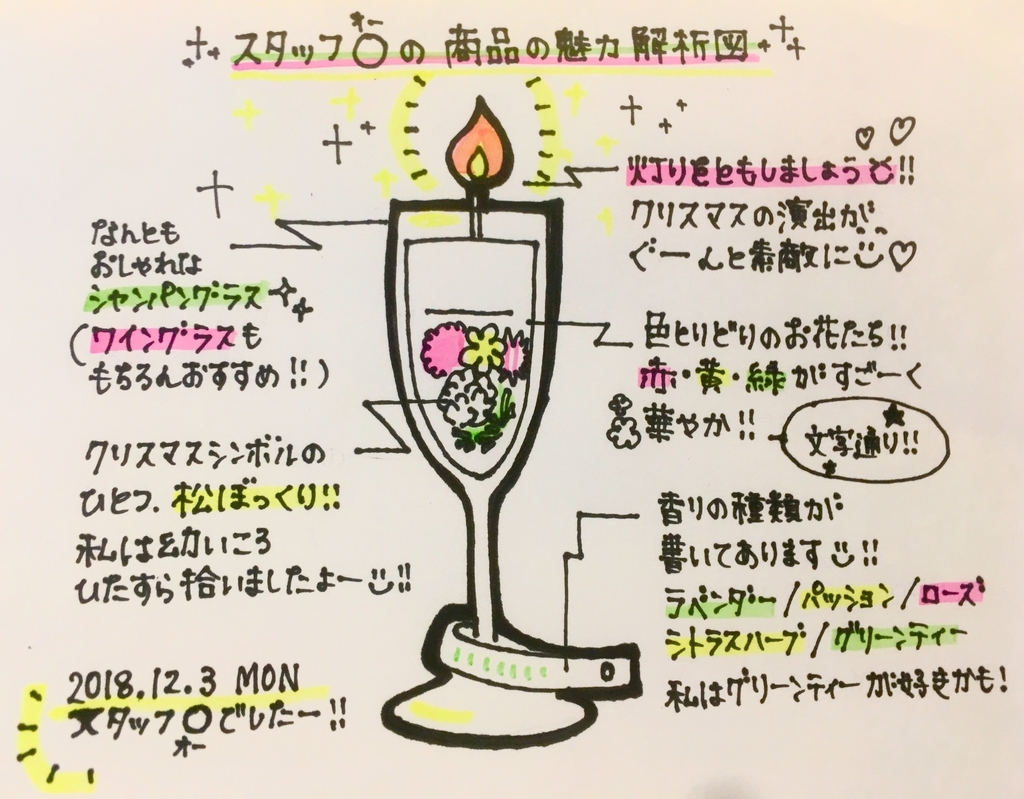 スタッフ〇の商品の魅力解析図
オー
灯りをともしましょう!!
クリスマスの演出が、
ぐーんと素敵に
なんとも
おしゃれな
シャンパングラス
(ワイングラスも
もちろんおすすめ!!)
色とりどりのお花たち!!
赤・黄・緑がすごーく
華やか!!
文字通り!!
クリスマスシンボルの
ひとつ、松ぼっくり!!
私は幼いころ
ひたすら拾いましたよー!!
香りの種類が
書いてあります!!
ラベンダー/パッション/ローズ
シトラスハーブ/グリーンティー
私はグリーンティーが好きかも!
2018.12.3 MON
スタッフ〇でしたー!!
オー